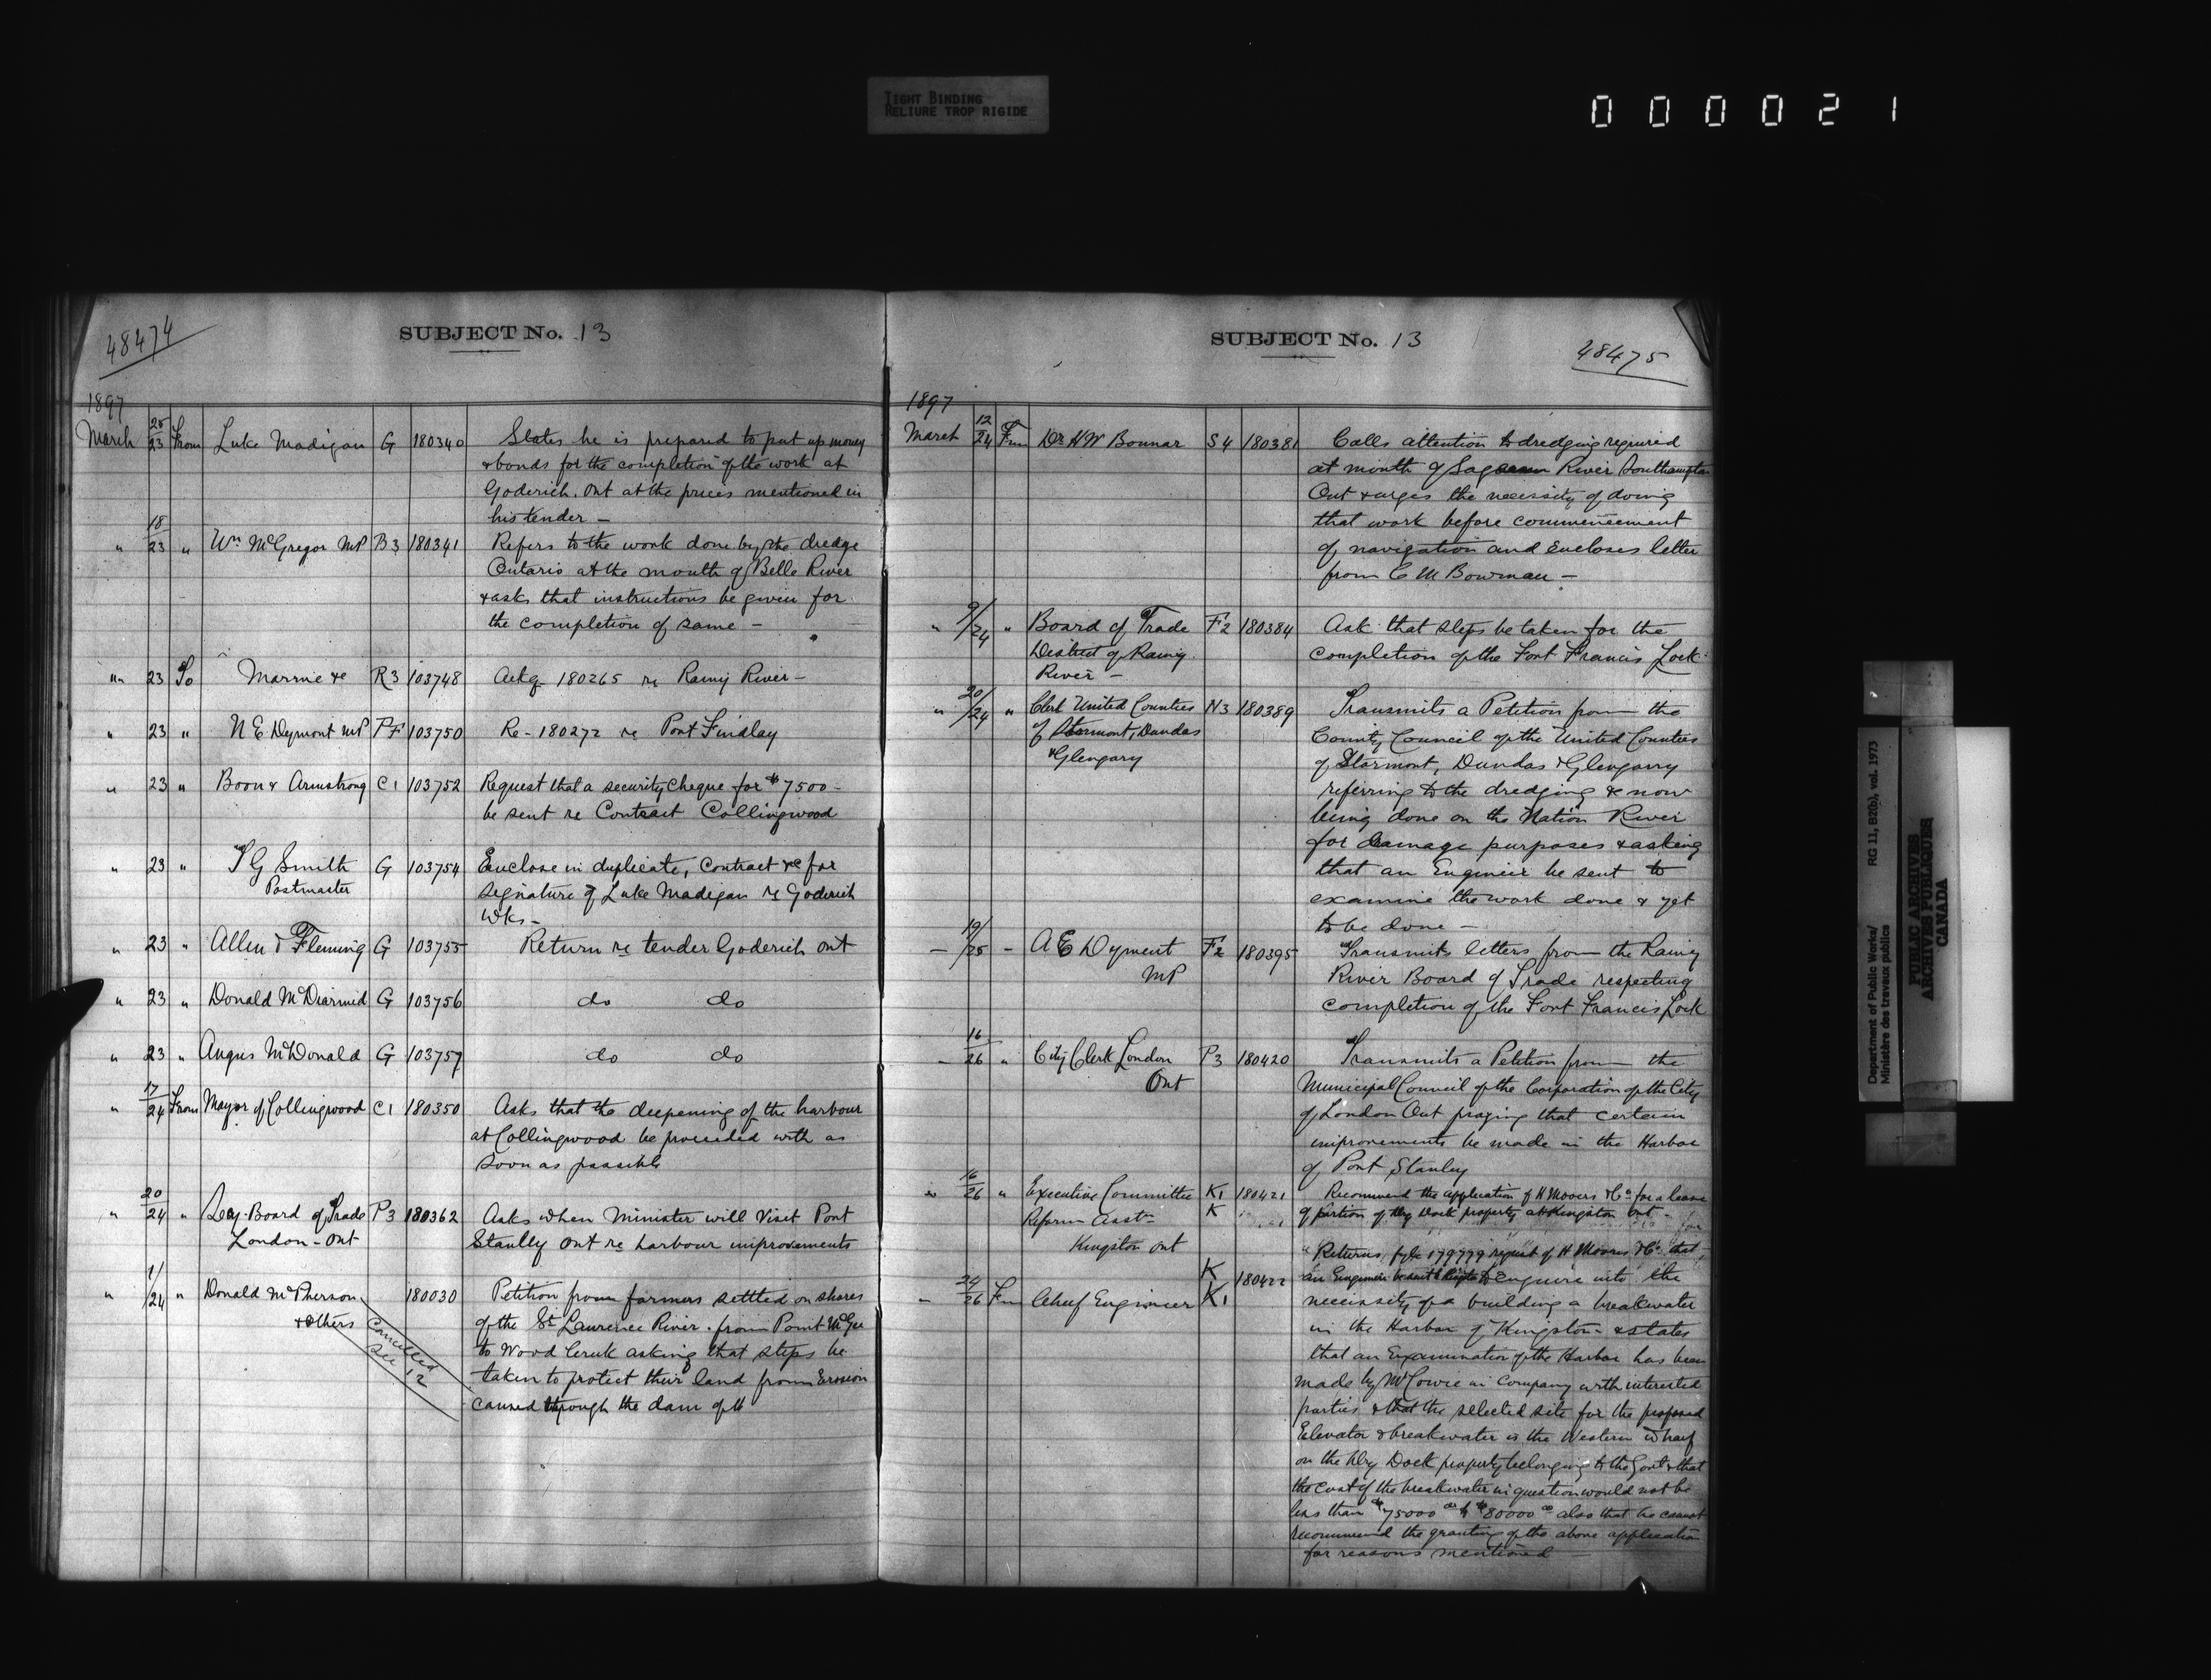 TIGHT BINDING
RELIURE TROP RIGIDE
000021
48474
SUBJECT No. 13
1897
March 20/23 From Luke Madigan G 180340 States he is prepared to put up money
& bonds for the completion of the work at
Goderich, Ont at the prices mentioned in
his tender —
" 18/23 " Wm McGregor MP B3 180341 Refers to the work done by the dredge
Ontario at the mouth of Belle River
& asks that instructions be given for
the completion of same —
" 23 To Marrie &c R3 103748 Ackg 180265 re Rainy River —
" 23 " N E Dyment MP PF 103750 Re - 180272 re Port Findlay
" 23 " Boon & Armstrong C1 103752 Request that a security cheque for $7500 -
be sent re Contract Collingwood
" 23 " T G Smith G 103754 Enclose in duplicate, Contract &c for
Postmaster signature of Luke Madigan re Goderich
Wks —
" 23 " Allen & Fleming G 103755 Return re tender Goderich Ont
" 23 " Donald McDiarmid G 103756 do do
" 23 " Angus McDonald G 103757 do do
" 17/24 From Mayor of Collingwood C1 180350 Asks that the deepening of the harbour
at Collingwood be proceeded with as
soon as possible
" 20/24 " Secy. Board of Trade P3 180362 Asks when Minister will Visit Port
London - Ont Stanley Ont re harbour improvements
" 1/24 " Donald McPherson 180030 Petition from farmers settled on shores
& Others of the St Lawrence River. from Point McGee
cancelled to Wood Creek asking that steps be
see 12 taken to protect their land from Erosion
caused through the dam of the
SUBJECT No. 13
48475
1897
March 12/24 Fm Dr H W Bonnar S4 180381 Calls attention to dredging required
at mouth of Sageeen River Southampton
Ont & urges the necessity of doing
that work before commencement
of navigation and Encloses letter
from C M Bowman —
" 9/24 " Board of Trade F2 180384 Ask that steps be taken for the
District of Rainy completion of the Fort Francis Lock
River —
" 20/24 " Clerk United Counties N3 180389 Transmits a Petition from the
of Stormont, Dundas County Council of the United Counties
& Glengary of Stormont, Dundas & Glengarry
referring to the dredging & now
being done on the Nation River
for damage purposes & asking
that an Engineer be sent to
examine the work done & yet
to be done —
— 19/25 — A E Dyment F2 180395 Transmits letters from the Rainy
MP River Board of Trade respecting
completion of the Fort Francis Lock
— 16/26 " City Clerk London P3 180420 Transmits a Petition from the
Ont Municipal Council of the Corporation of the City
of London Ont praying that certain
improvements be made in the Harbor
of Port Stanley
" 16/26 " Executive Committee K1 180421 Recommend the application of H Mooers & Co for a lease
Reform Asstn K of portion of Dry Dock property at Kingston Ont —
Kingston Ont
Returns fyle 179779 request of H Mooers & Co that
K 180422 an Engineer be sent to Kingston to Enquire into the
— 24/26 Fm Chief Engineer K1 necessity of a building a breakwater
in the Harbor of Kingston & states
that an Examination of the Harbor has been
made by Mr Cowie in Company with interested
parties & that the selected site for the proposed
Elevator & breakwater is the Western Wharf
on the Dry Dock property belonging to the Govt & that
the cost of the breakwater in question would not be
less than $75000 00 to $80000 00 also that he cannot
recommend the granting of the above application
for reasons mentioned —
Department of Public Works/ RG 11, B2(b), vol. 1973
Ministère des travaux publics
PUBLIC ARCHIVES
ARCHIVES PUBLIQUES
CANADA